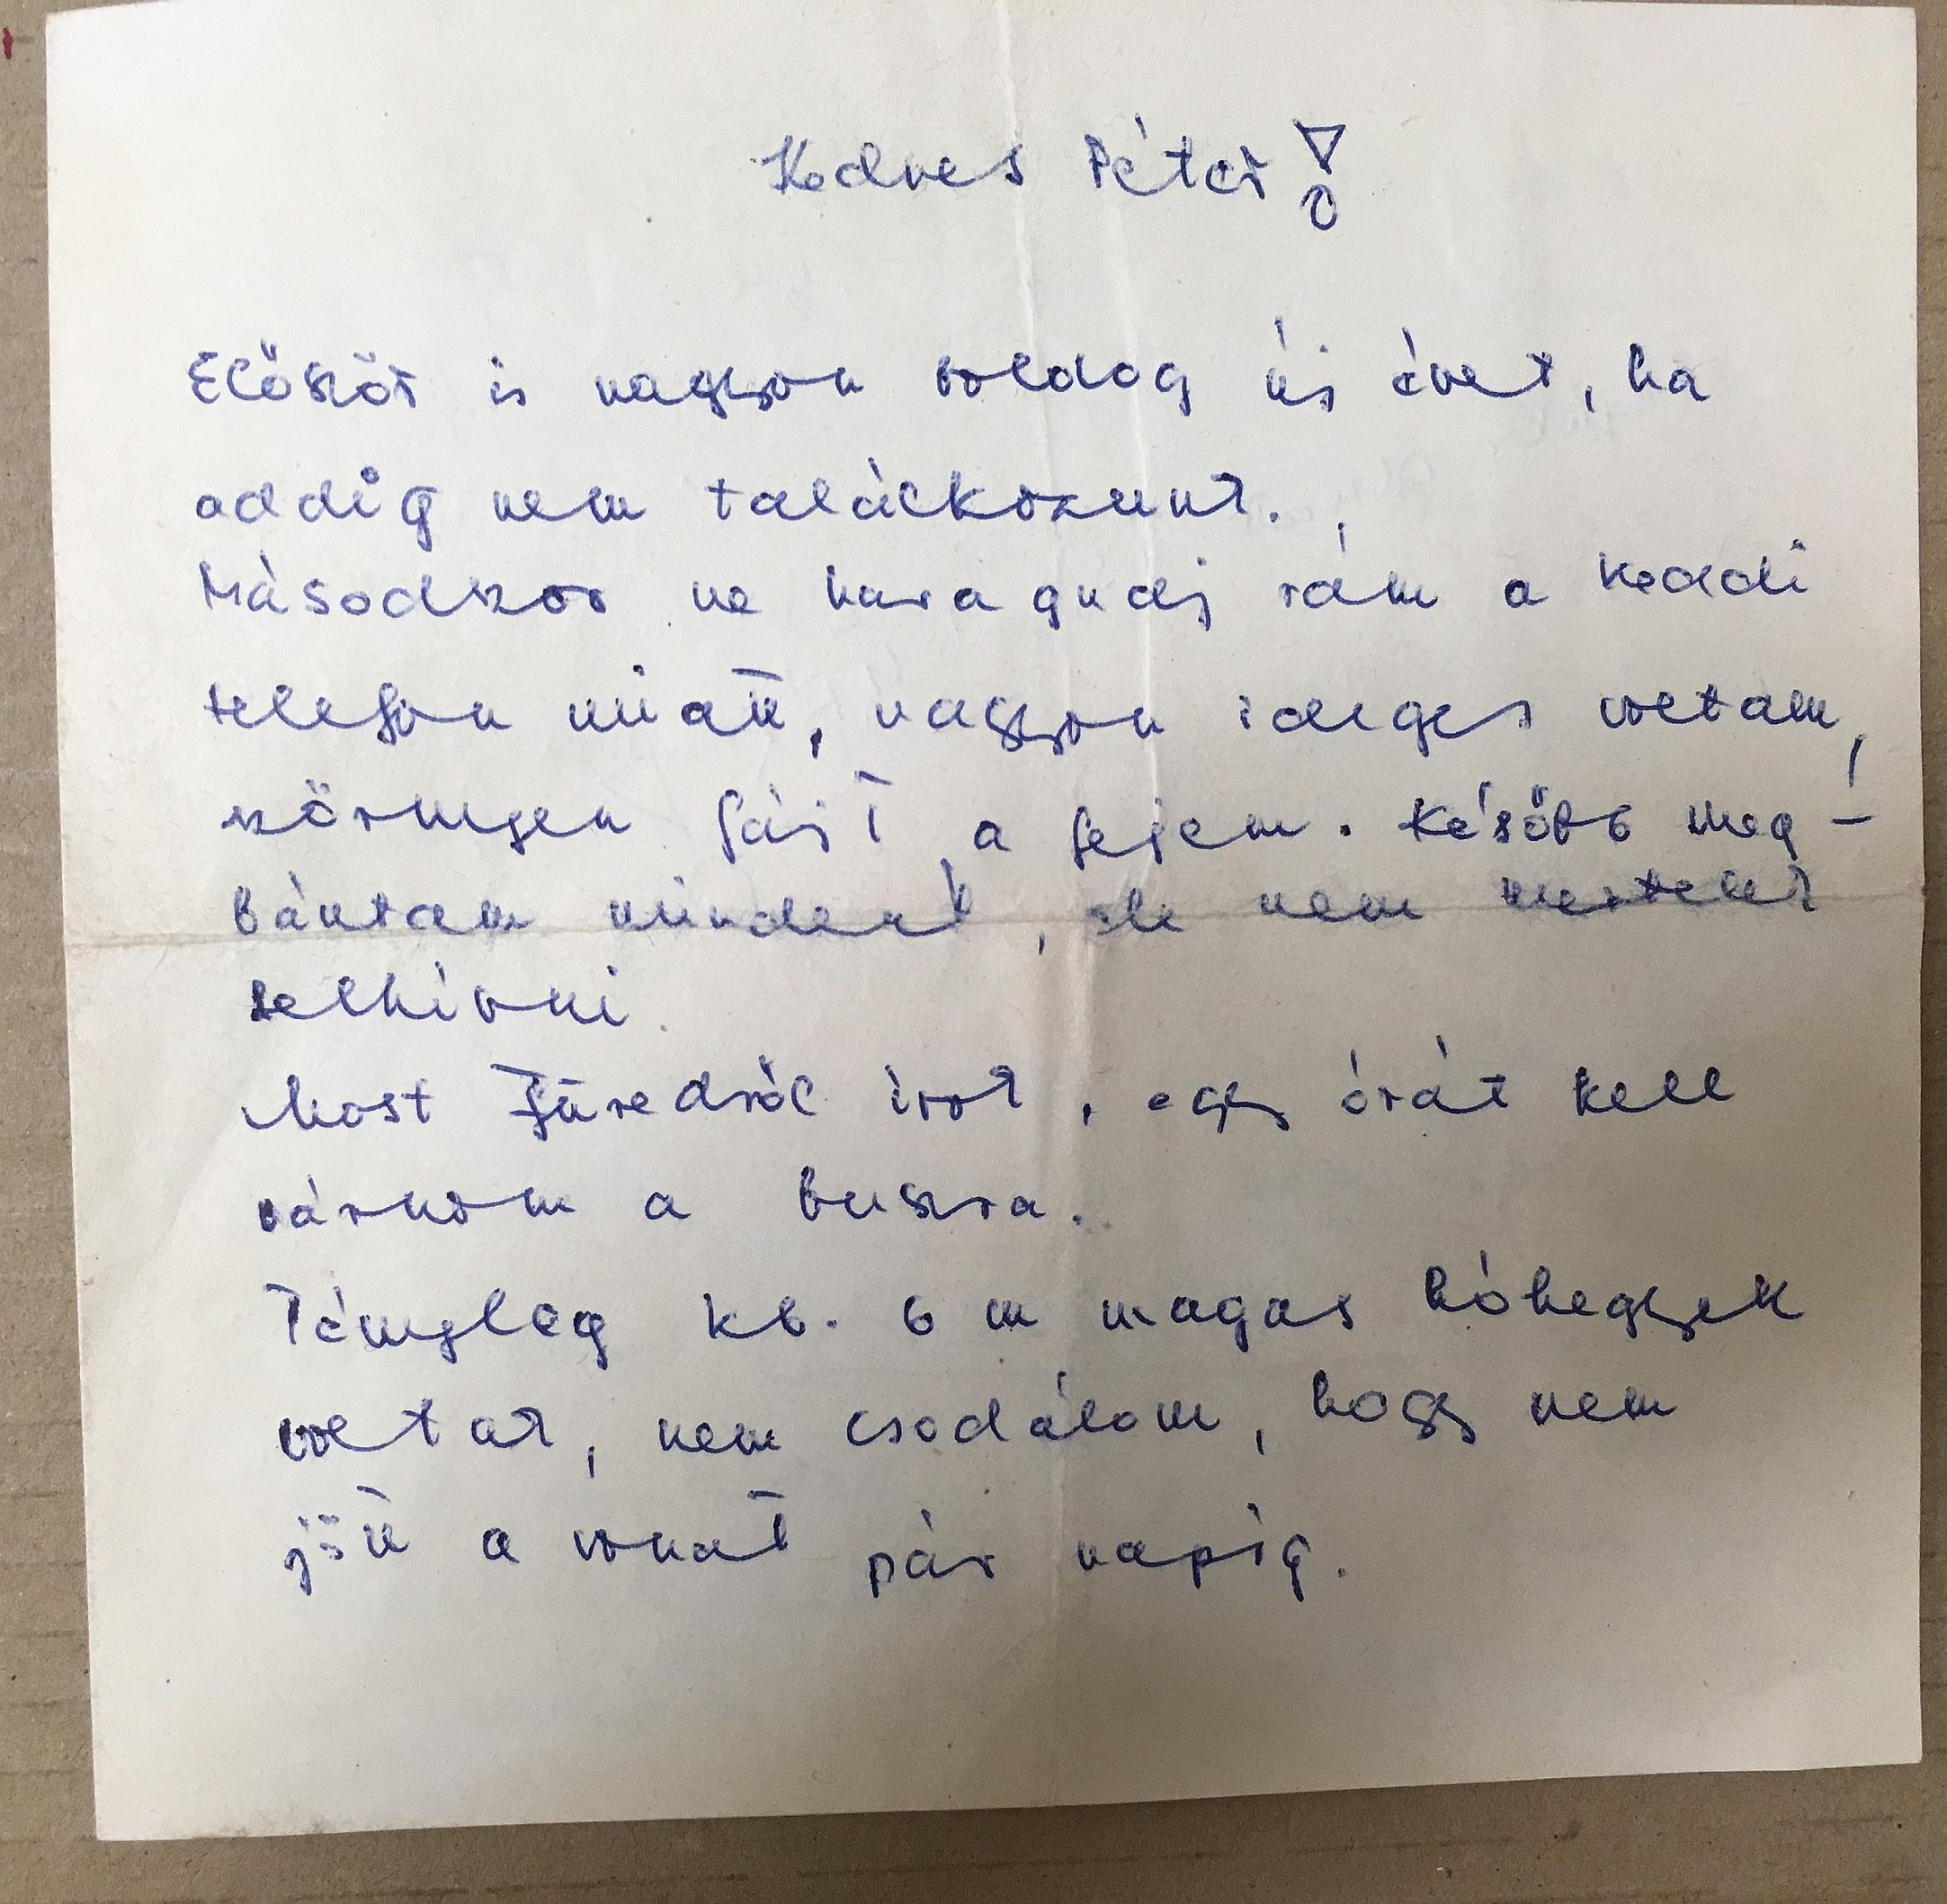 Kedves Péter!
Először is nagyon boldog új évet, ha
addig nem találkozunk.
Másodszor ne haragudj rám a keddi
telefon miatt, nagyon ideges voltam,
szörnyen fájt a fejem. Később meg-
bántam mindent, de nem mertelek
felhívni.
Most Füredről írok, egy órát kell
várnom a buszra.
Tényleg kb. 6 m magas hóhegyek
voltak, nem csodálom, hogy nem
jött a vonat pár napig.